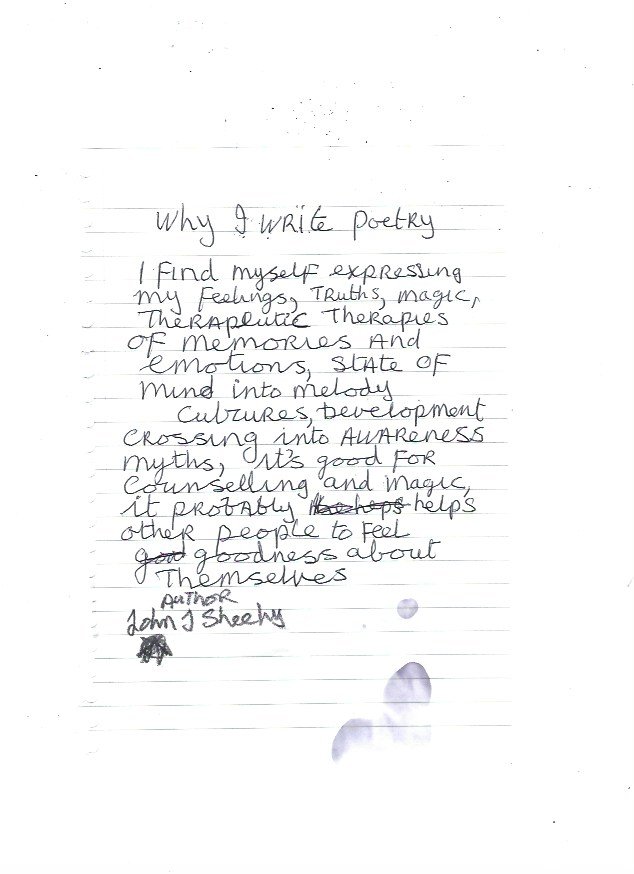 Why I write poetry
I find myself expressing
my feelings, Truths, magic,
Therapeutic Therapies
of memories and
emotions, state of
mind into melody
Cultures, Development
crossing into awareness
myths, it's good for
counselling and magic,
it probably helps
other people to feel
goodness about
Themselves
Author
John J Sheehy